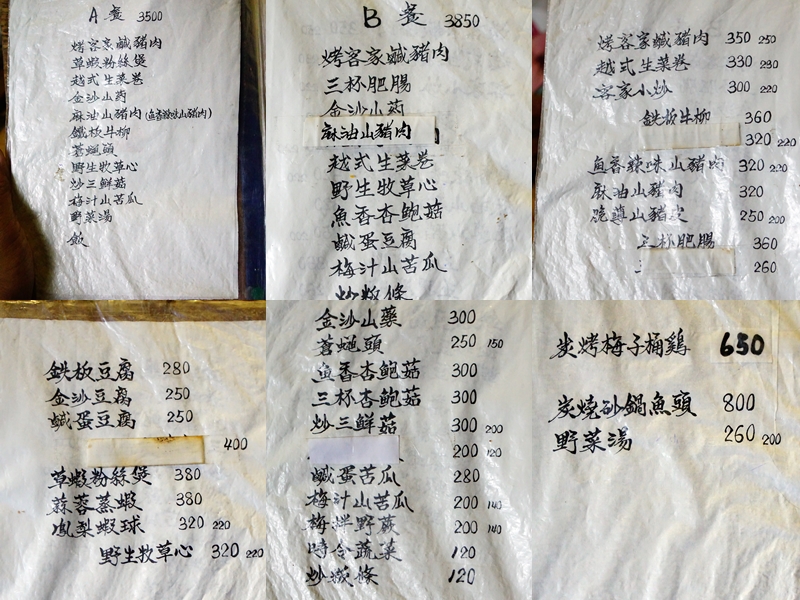 A 套 3500
烤客家鹹豬肉
草蝦粉絲煲
越式生菜卷
金沙山药
麻油山豬肉(魚香辣味山豬肉)
鐵板牛柳
蒼蠅頭
野生牧草心
炒三鮮菇
梅汁山苦瓜
野菜湯
飯
B 套 3850
烤客家鹹豬肉
三杯肥腸
金沙山药
麻油山豬肉
越式生菜卷
野生牧草心
魚香杏鮑菇
鹹蛋豆腐
梅汁山苦瓜
炒粄條
烤客家鹹豬肉 350 250
越式生菜卷 330 230
客家小炒 300 220
鉄板牛柳 360
320 220
魚香辣味山豬肉 320 220
麻油山豬肉 320
山豬皮 250 200
三杯肥腸 360
260
鉄板豆腐 280
金沙豆腐 250
鹹蛋豆腐 250
400
草蝦粉絲煲 380
蒜蓉蒸蝦 380
鳳梨蝦球 320 220
野生牧草心 320 220
金沙山藥 300
蒼蠅頭 250 150
魚香杏鮑菇 300
三杯杏鮑菇 300
炒三鮮菇 300 200
200 120
鹹蛋苦瓜 280
梅汁山苦瓜 200 140
梅拌野蕨 200 140
時令蔬菜 120
炒粄條 120
炭烤梅子桶鷄 650
炭燒砂鍋魚頭 800
野菜湯 260 200